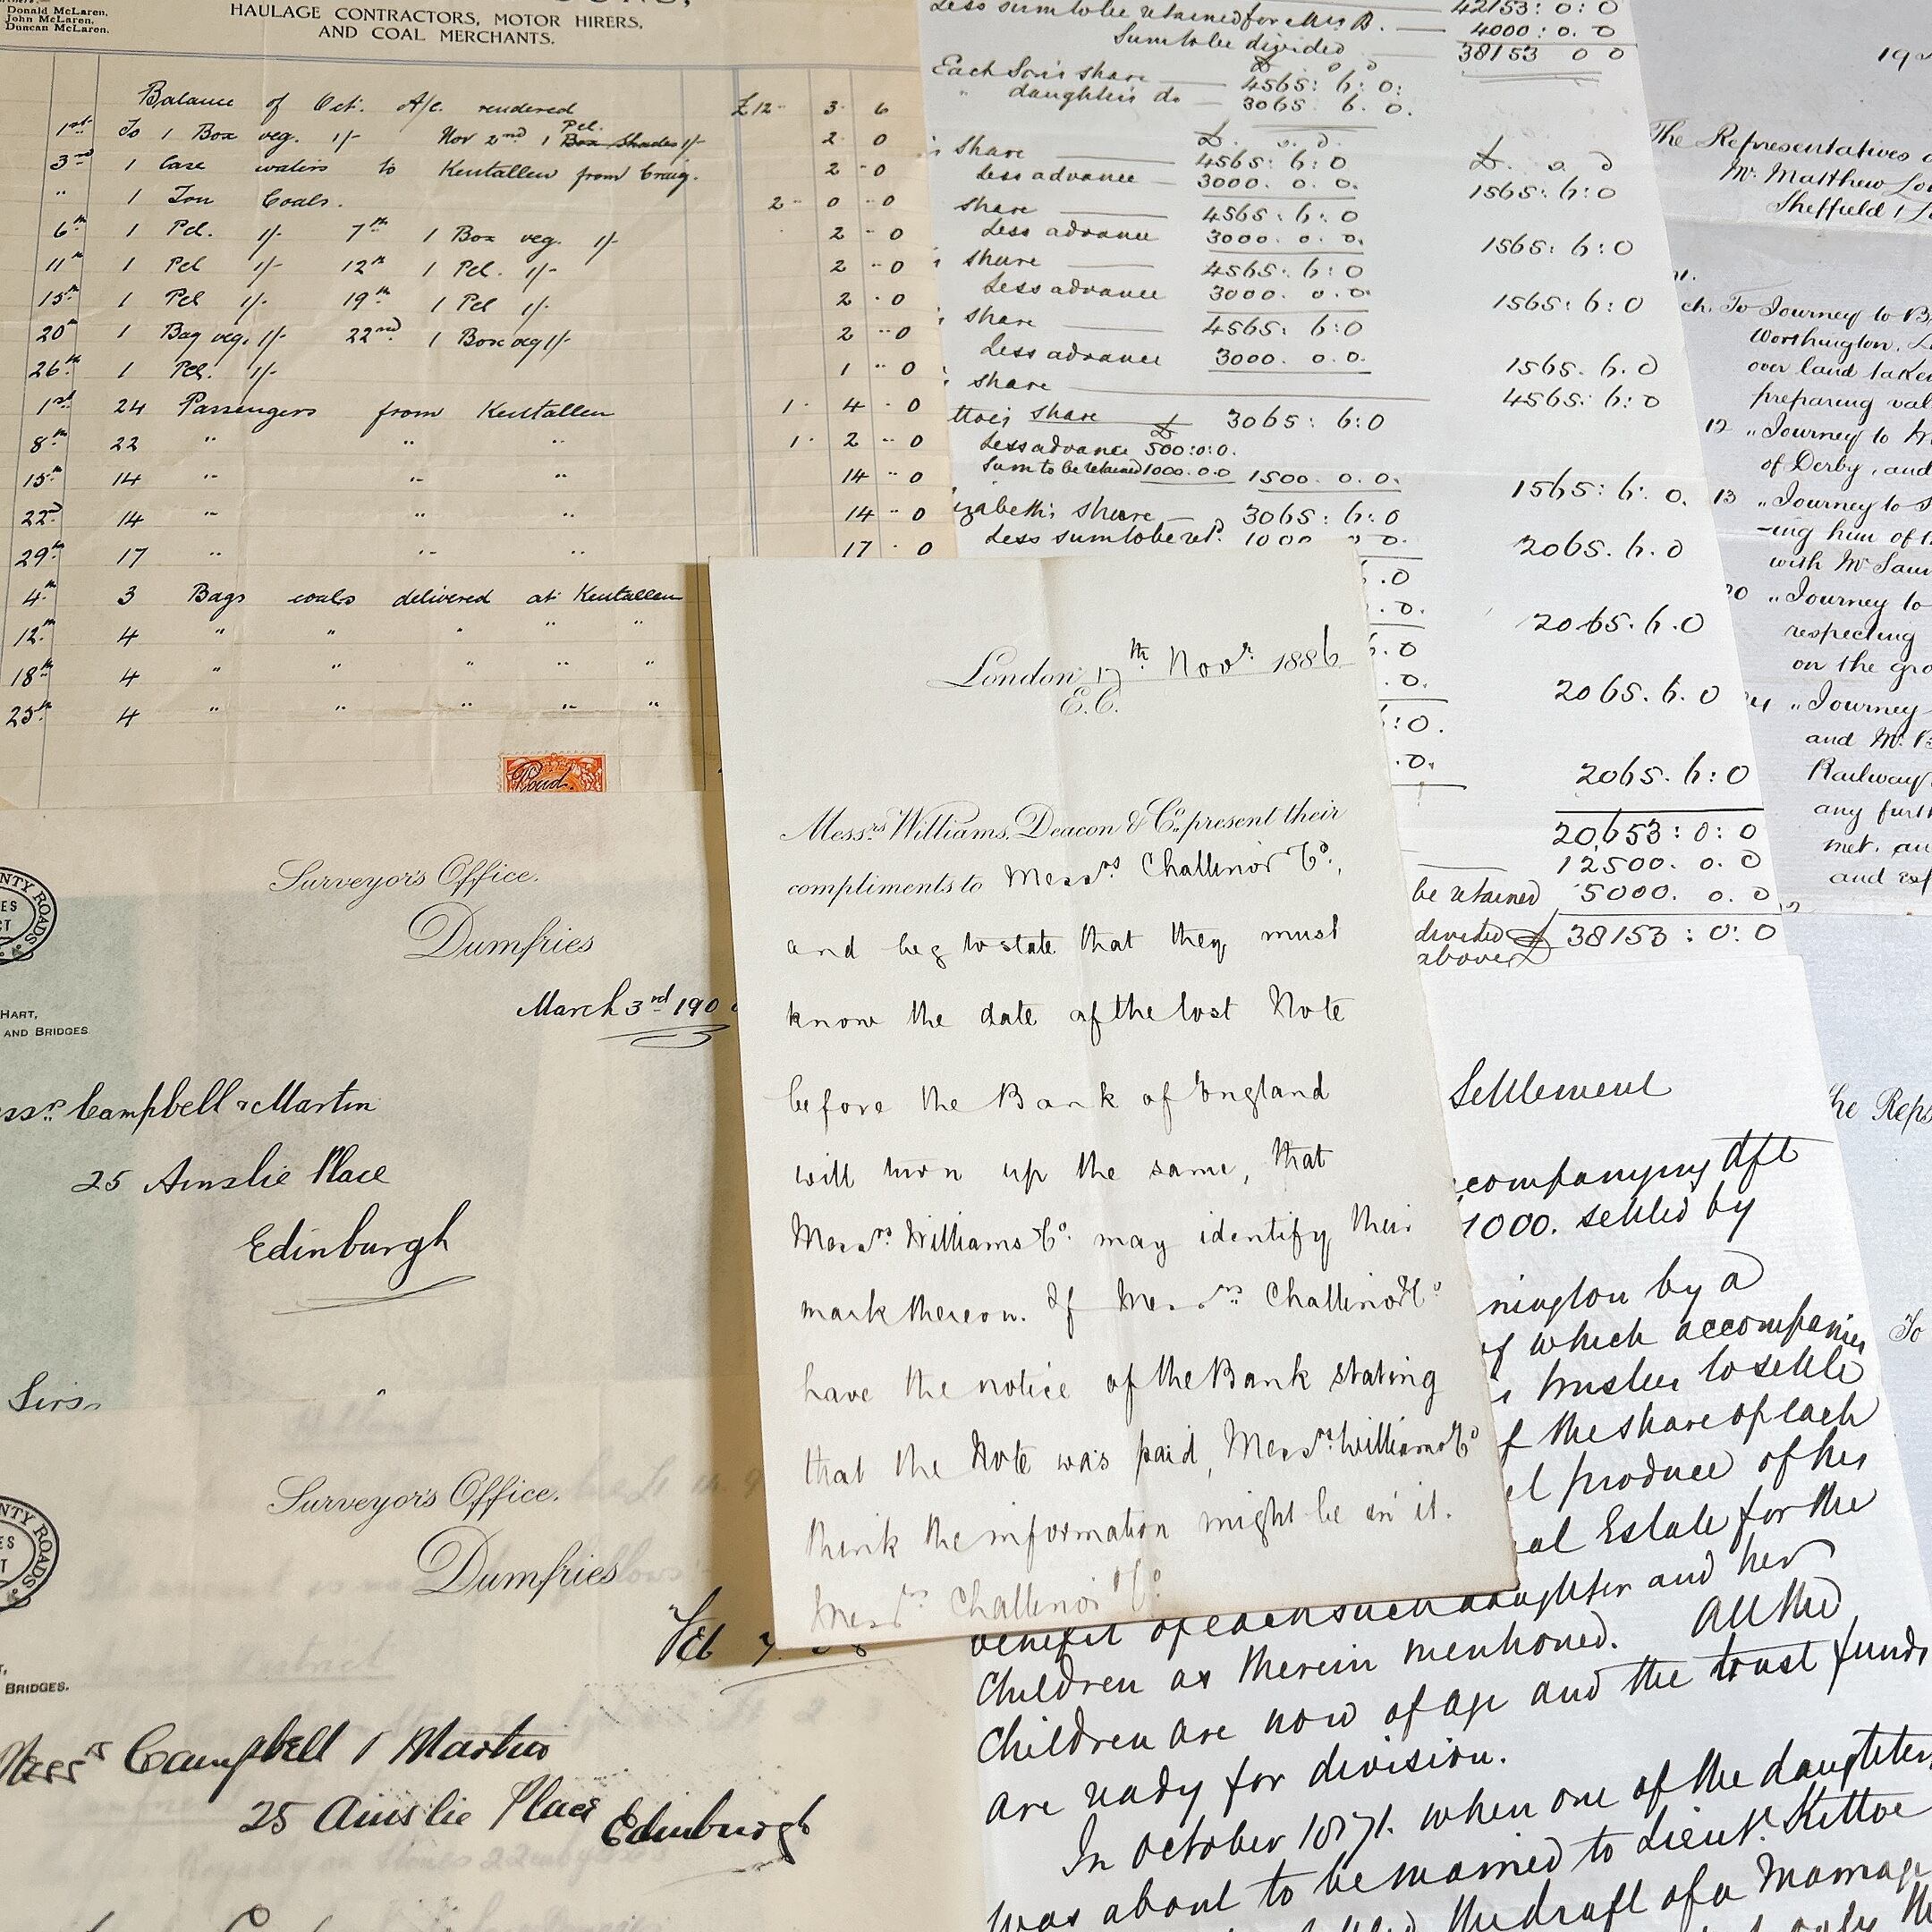 Donald McLaren,
John McLaren,
Duncan McLaren.
HAULAGE CONTRACTORS, MOTOR HIRERS,
AND COAL MERCHANTS.
Balance of Oct: A/c. rendered £12 - 3 - 6
1st To 1 Box veg. 1/- Nov 2nd 1 Pcl. Box Shades 1/- 2 - 0
3rd 1 Case waters to Kentallen from Craig. 2 - 0
" 1 Ton Coals. 2 - 0 - 0
6th 1 Pcl. 1/- 7th 1 Box veg. 1/- 2 - 0
11th 1 Pcl 1/- 12th 1 Pcl. 1/- 2 - 0
15th 1 Pcl 1/- 19th 1 Pcl 1/- 2 - 0
20th 1 Bag veg. 1/- 22nd 1 Box veg 1/- 2 - 0
26th 1 Pcl. 1/- 1 - 0
1st 24 Passengers from Kentallen 1 - 4 - 0
8th 22 " " " 1 - 2 - 0
15th 14 " " " 14 - 0
22nd 14 " " " 14 - 0
29th 17 " " " 17 - 0
4th 3 Bags coals delivered at Kentallen
12th 4 " " " " "
18th 4 " " " " "
25th 4 " " " " "
Less sum to be retained for Mrs B. 42153 : 0 : 0
4000 : 0 . 0
Sum to be divided 38153 0 0
Each Son's share 4565 : 6 : 0
" daughter's do 3065 . 6 . 0.
£. s. d.
share 4565 : 6 : 0
Less advance 3000 . 0 . 0. £. s. d
1565 : 6 : 0
share 4565 : 6 : 0
Less advance 3000 . 0 . 0. 1565 : 6 : 0
share 4565 : 6 : 0
Less advance 3000 . 0 . 0. 1565 : 6 : 0
share 4565 : 6 : 0
Less advance 3000 . 0 . 0. 1565 . 6 . 0
share 4565 : 6 : 0
share £ 3065 : 6 : 0
Less advance 500 : 0 : 0.
Sum to be retained 1000 . 0 . 0 1500 . 0 . 0. 1565 : 6 : 0.
share 3065 : 6 : 0
Less sum to be ret. 2065 . 6 . 0
2065 . 6 . 0
2065 . 6 . 0
2065 . 6 : 0
20,653 : 0 : 0
12500 . 0 . 0
be retained 5000 . 0 . 0
divided £ 38153 : 0 : 0
above
The Representatives
Mr. Matthew
Sheffield
To Journey to
Worthington.
over land taken
preparing
12 " Journey to
of Derby, and
13 " Journey to
-ing him of
with Mr
" Journey to
respecting
on the
" Journey
and Mr.
Railway
any
met.
and
London 17th Novr. 1886
E.C.
Messrs Williams, Deacon & Co. present their
compliments to Messrs. Challinor & Co.,
and beg to state that they must
know the date of the last Note
before the Bank of England
will turn up the same, that
Messrs. Williams & Co. may identify their
mark thereon. If Messrs Challinor & Co
have the notice of the Bank stating
that the Note was paid, Messrs. Williams & Co
think the information might be on it.
Messrs Challinor & Co.
Surveyor's Office.
Dumfries
March 3rd 190
HART,
AND BRIDGES
Campbell & Martin
25 Ainslie Place
Edinburgh
Sirs
Surveyor's Office.
Dumfries
Feb
BRIDGES.
Messrs Campbell & Martin
25 Ainslie Place Edinburgh
Settlement
accompanying dft
1000. settled by
by a
of which accompanies
trustees to settle
the share of each
produce of his
Estate for the
daughter and her
benefit of each such
Children as therein mentioned. All the
Children are now of age and the trust funds
are ready for division.
In October 1871. when one of the daughters
was about to be married to Lieut. Kittoe
the draft of a Marriage